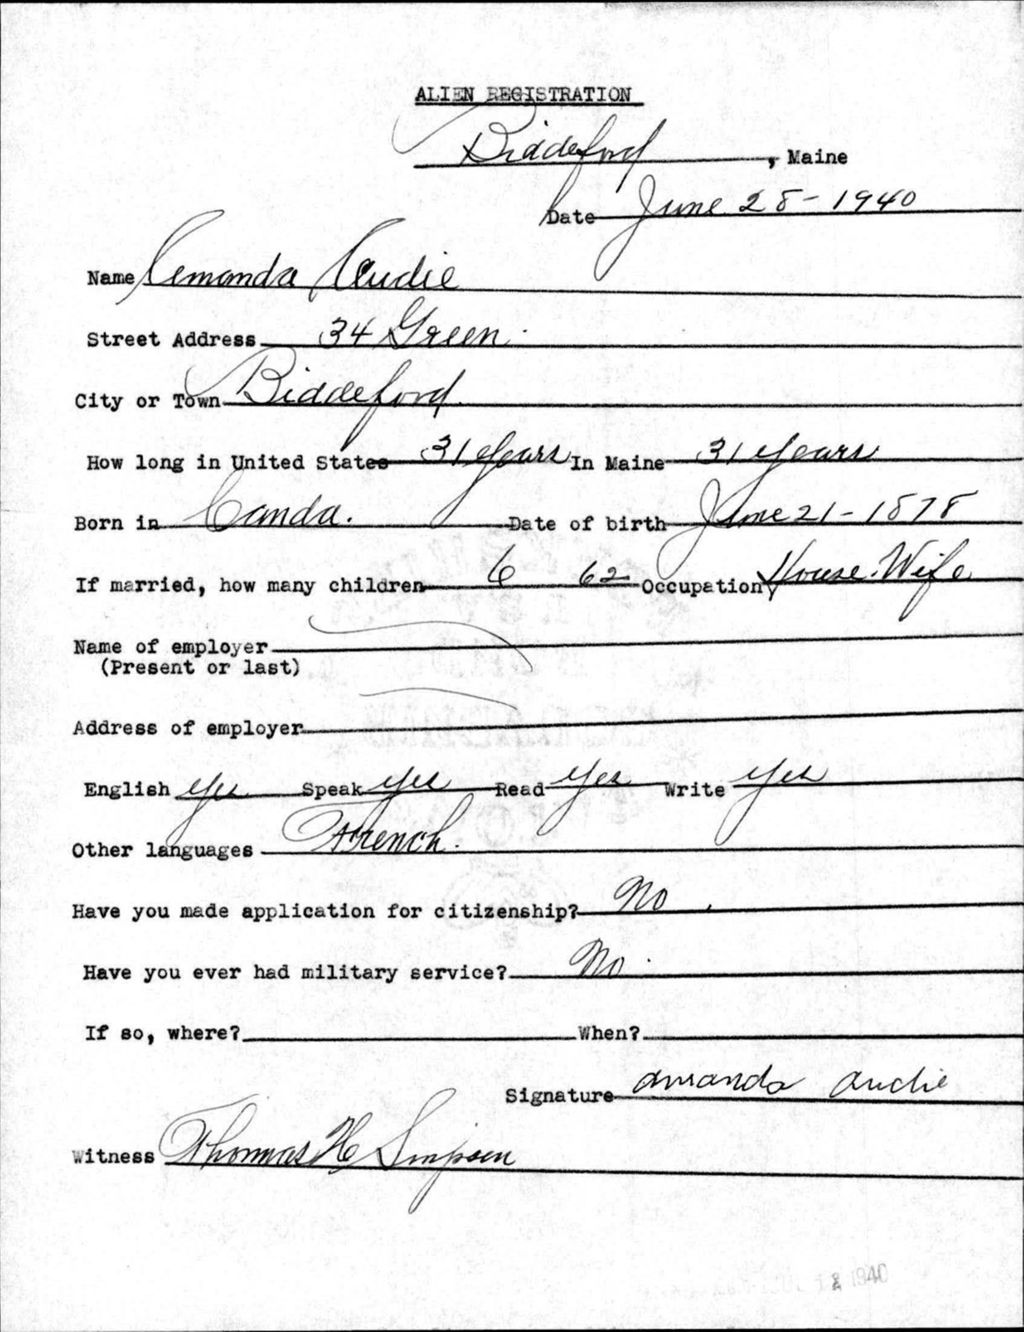 ALIEN REGISTRATION
Biddeford, Maine
Date June 28-1940
Name Amanda Audie
Street Address 34 Green.
City or Town Biddeford.
How long in United States 31 years In Maine 31 years
Born in Canda. Date of birth June 21-1878
If married, how many children 6 62 Occupation House Wife
Name of employer
(Present or last)
Address of employer
English yes Speak yes Read yes Write yes
Other languages French.
Have you made application for citizenship? No.
Have you ever had military service? No.
If so, where? When?
Signature amanda audie
Witness Thomas H Simpson
12 1940